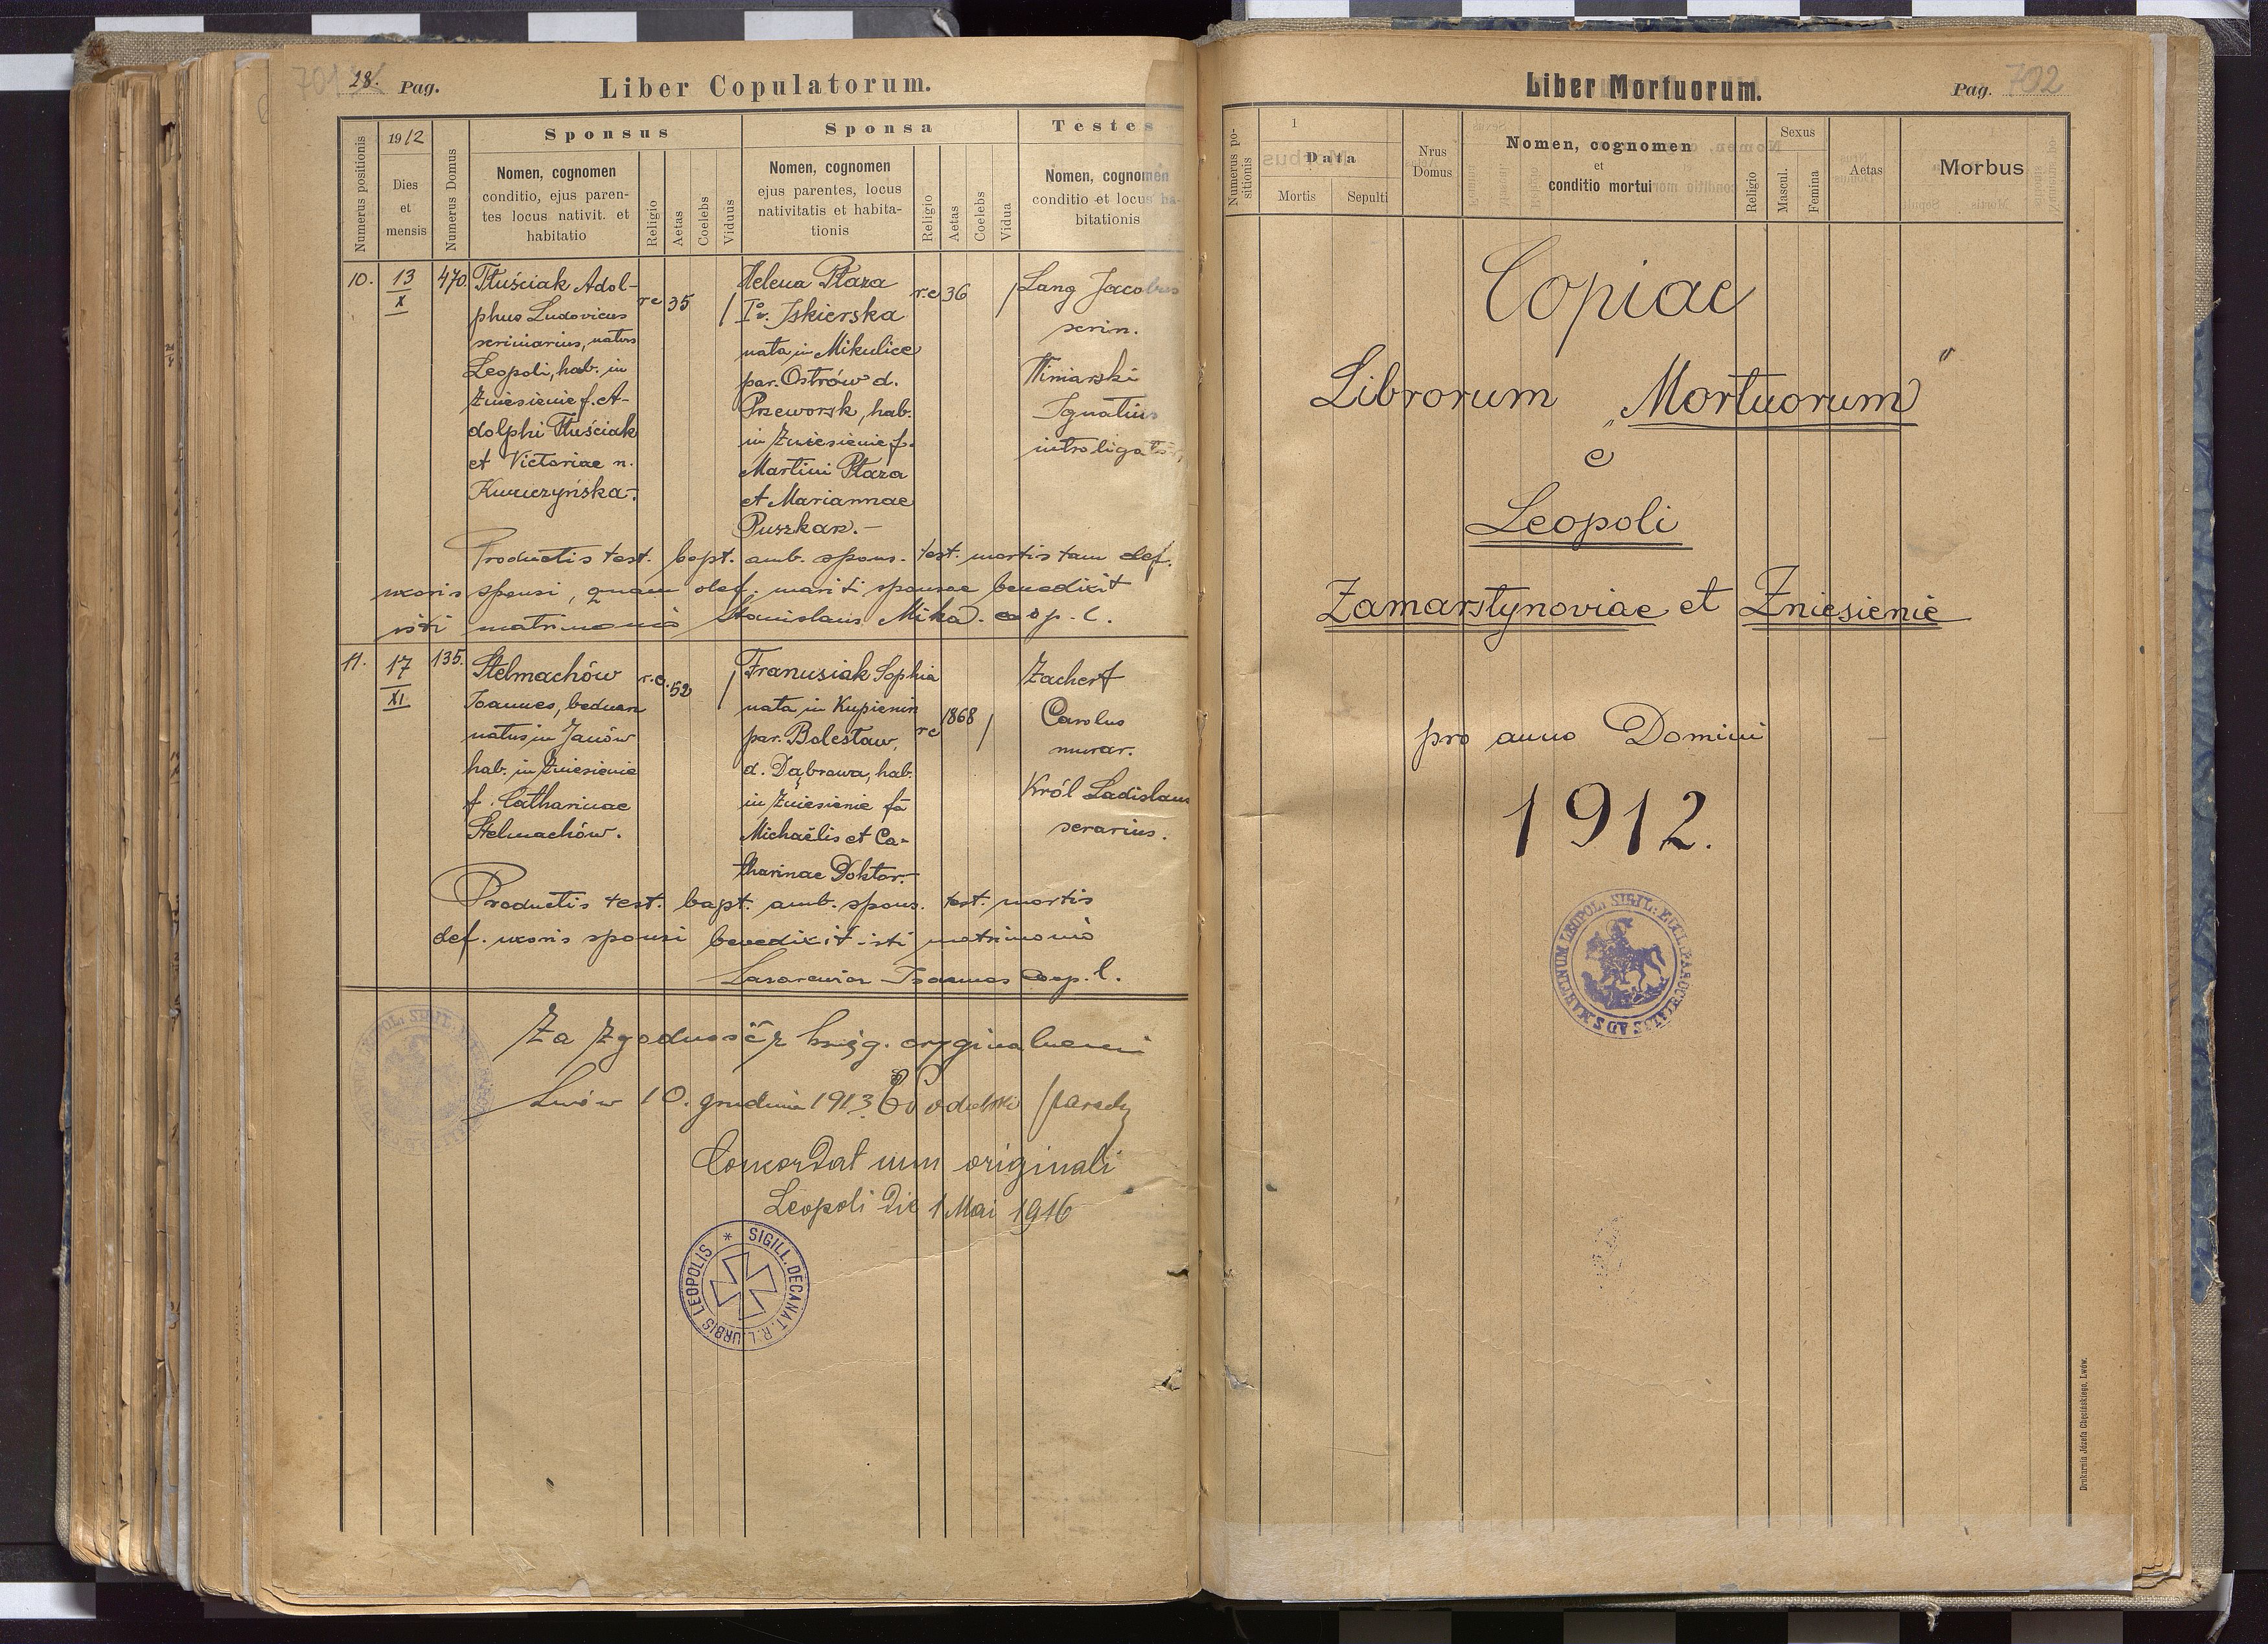 701
28. Pag.
Liber Copulatorum.
Numerus positionis
1912
Dies
et
mensis
Numerus Domus
Sponsus
Nomen, cognomen
conditio, ejus paren-
tes locus nativit. et
habitatio
Religio
Aetas
Coelebs
Viduus
Sponsa
Nomen, cognomen
ejus parentes, locus
nativitatis et habita-
tionis
Religio
Aetas
Coelebs
Vidua
Testes
Nomen, cognomen
conditio et locus ha-
bitationis
10.
13
X
470.
Tłuściak Adol-
phus Ludovicus
scriniarius, natus
Leopoli, hab. in
Zniesienie f. A-
dolphi Tłuściak
et Victoriae n.
rc
35
/
Helena Płaza
Iº v. Iskierska
nata in Mikulice
par. Ostrów d.
Przeworsk, hab.
in Zniesienie f.
Martini Płaza
et Mariannae
Puszkarz.-
r.c
36
/
Lang Jacobus
scrin.
Winiarski
Ignatius
introligator
Productis test. bapt. amb. spons. test. mortis tam def.
uxoris sponsi, quam def. mariti sponsae benedixit
isti matrimonio Stanislaus Mika. coop. l.
11.
17
XI
135.
Stelmachów
Joannes, beduar
natus in Janów
hab. in Zniesienie
f. Catharinae
Stelmachów.
r.c.
52
/
Franusiak Sophia
nata in Kupienin
par. Bolesław,
d. Dąbrowa, hab.
in Zniesienie fa
Michaëlis et Ca-
tharinae Doktor.
rc
1868
/
Zachert
Carolus
murar.
Król Ladislaus
serarius.
Productis test. bapt. amb. spons. test. mortis
def. uxoris sponsi benedixit isti matrimonio
Lazarewicz Joannes Coop. l.
Za zgodność z księg. oryginalnemi
Lwów 10. grudnia 1913
Concordat cum originali
Leopoli die 1 Mai 1916
* SIGILL. DECANAT. R. L. URBIS LEOPOLIS
Liber Mortuorum.
Pag. 702
Numerus po-
sitionis
1
Data
Mortis
Sepulti
Nrus
Domus
Nomen, cognomen
et
conditio mortui
Religio
Sexus
Mascul.
Femina
Aetas
Morbus
Copiae
Librorum „Mortuorum"
e
Leopoli
Zamarstynoviae et Zniesienie
pro anno Domini
1912.
Drukarnia Józefa Chęcińskiego, Lwów.